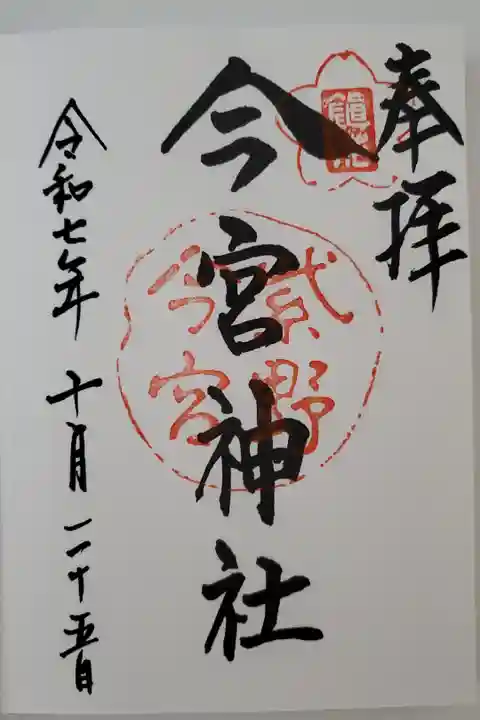 奉拝
今宮神社
紫野
今宮
令和七年 十月 二十五日